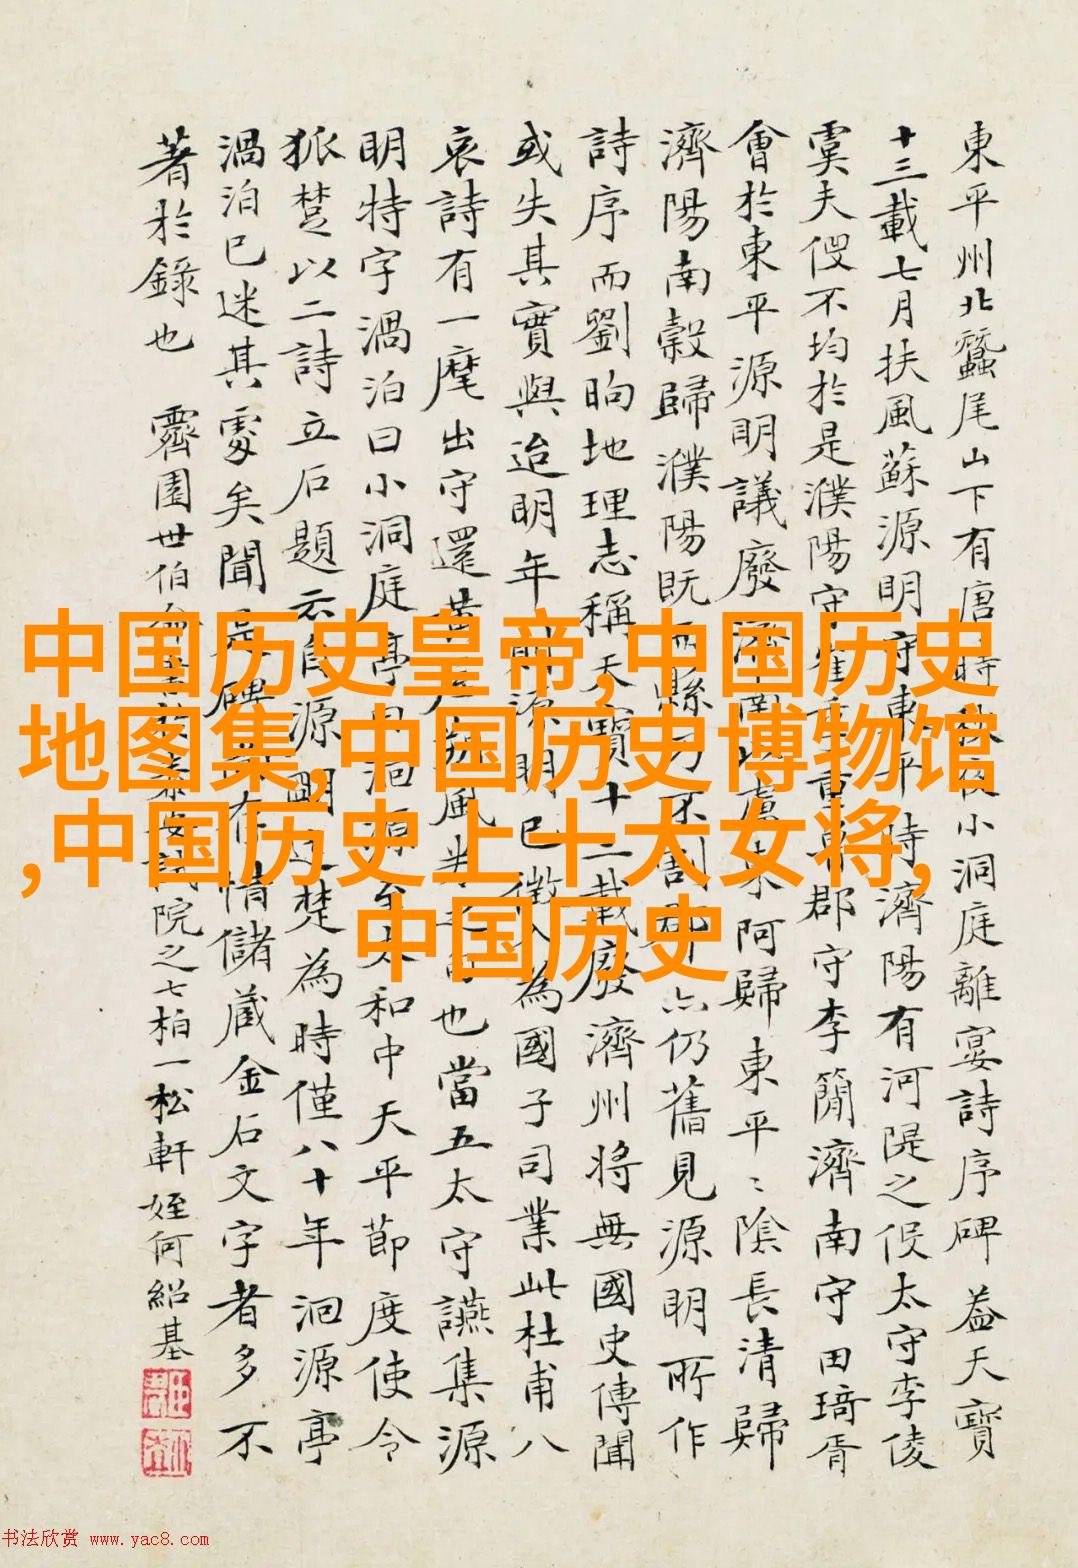 東平州北蠶尾山下有唐時小洞庭離宴詩序碑 蓋天寶
十三載七月扶風蘇源明守東平時濟陽有河隄之役太守李倰
虞夫役不均於是濮陽守崔郡守李簡濟南守田琦胥
會於東平源明議廢東阿歸東平〻陰長清歸
濟陽南穀歸濮陽既而縣乃不割郡亦仍舊見源明所作
詩序而劉昫地理志稱天寶十三載廢濟州將無國史傳聞
或失其實與迨明年源明已徵入為國子司業此杜甫八
哀詩有一麾出守還黃屋朔風也當五太守讌集源
明特字渦泊曰小洞庭亭曰洄源至太和中天平節度使令
狐楚以二詩立石題云自源明至楚為時僅八十年洄源亭
渦泊已迷其處矣聞是碑情儲蔵金石文字者多不
著於錄也 霽園世伯泰安試院之七柏一松軒 姪何紹基
中国历史皇帝,中国历史
地图集,中国历史博物馆
,中国历史上十大女将,
中国历史
书法欣赏 www.yac8.com